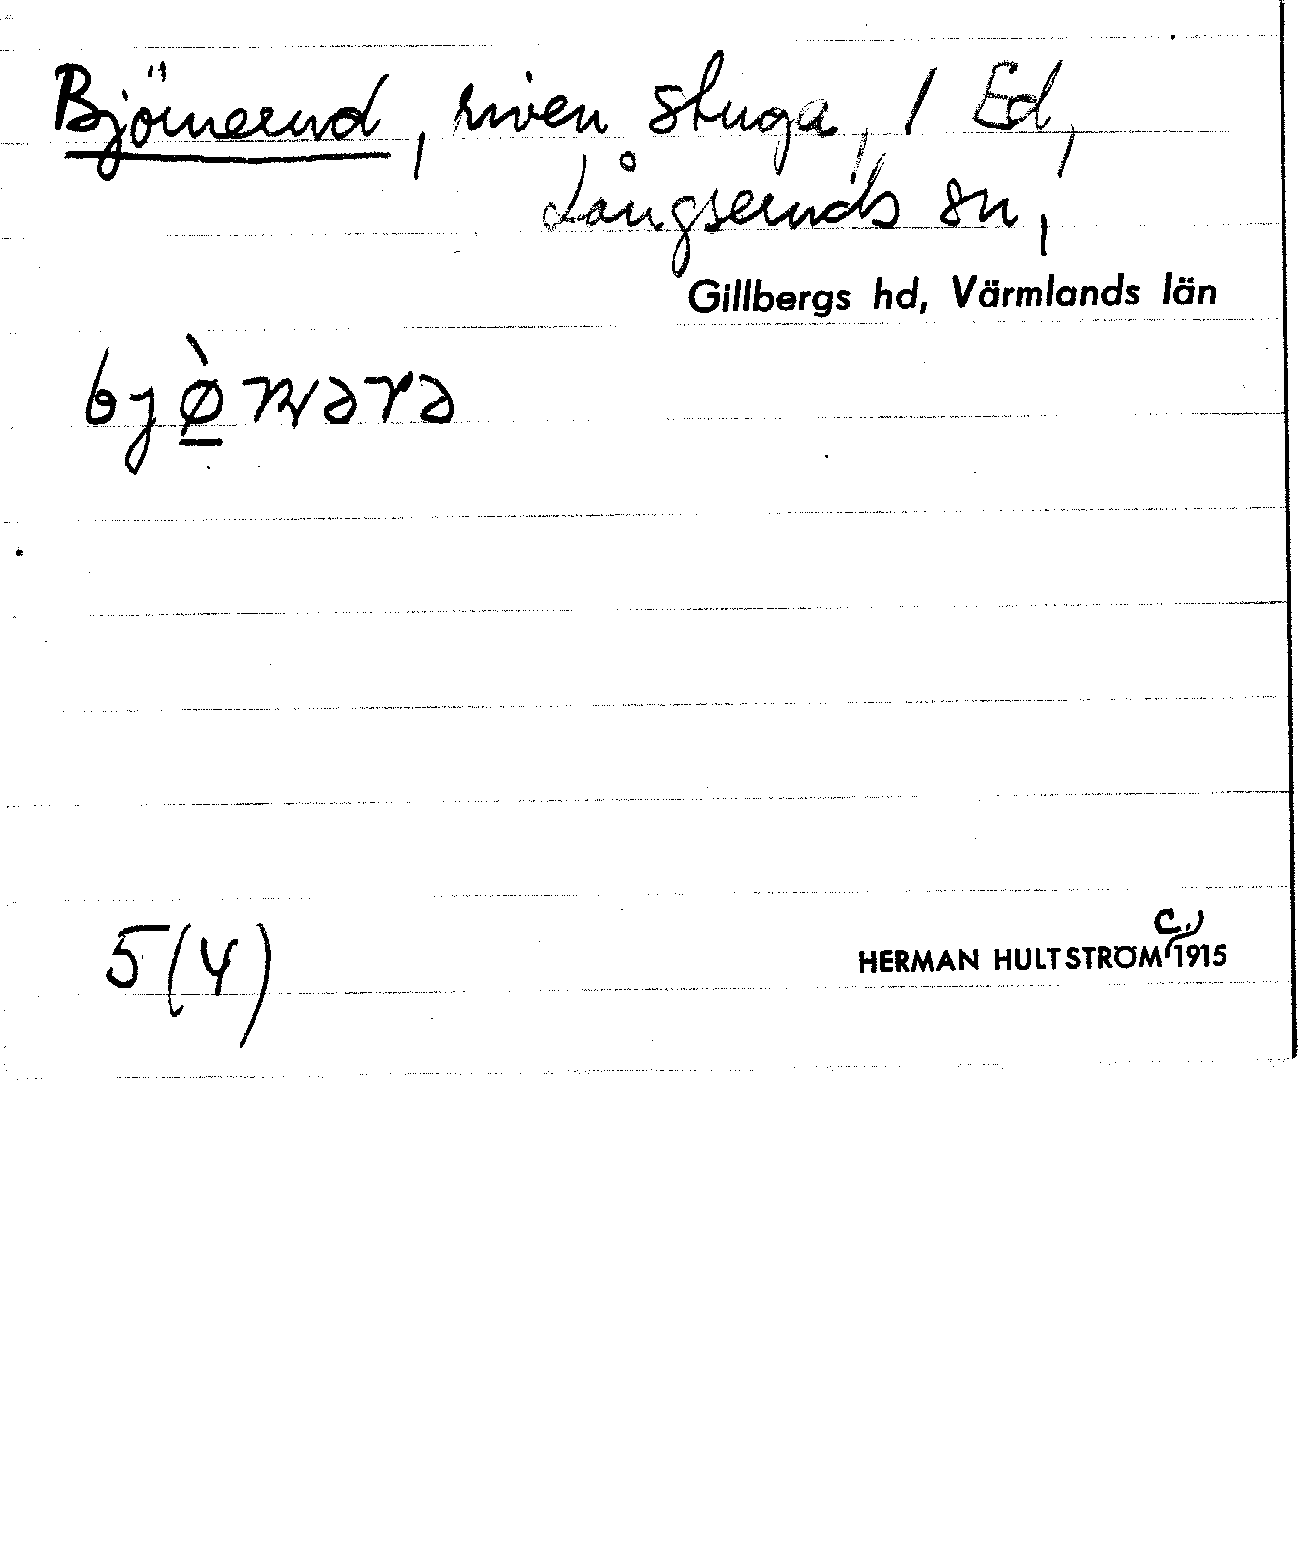 Björnerud, riven stuga, 1 Ed,
Långseruds sn,
Gillbergs hd, Värmlands län
5(4)
HERMAN HULTSTRÖM c. 1915